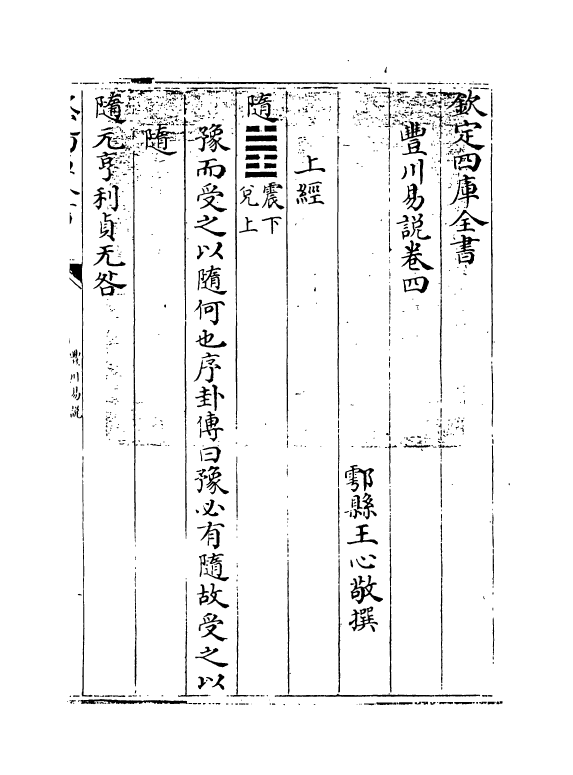 欽定四庫全書
豐川易說卷四
鄠縣王心敬撰
上經
隨䷐震下兌上
豫而受之以隨何也序卦傳曰豫必有隨故受之以
隨
隨元亨利貞无咎
豐川易說